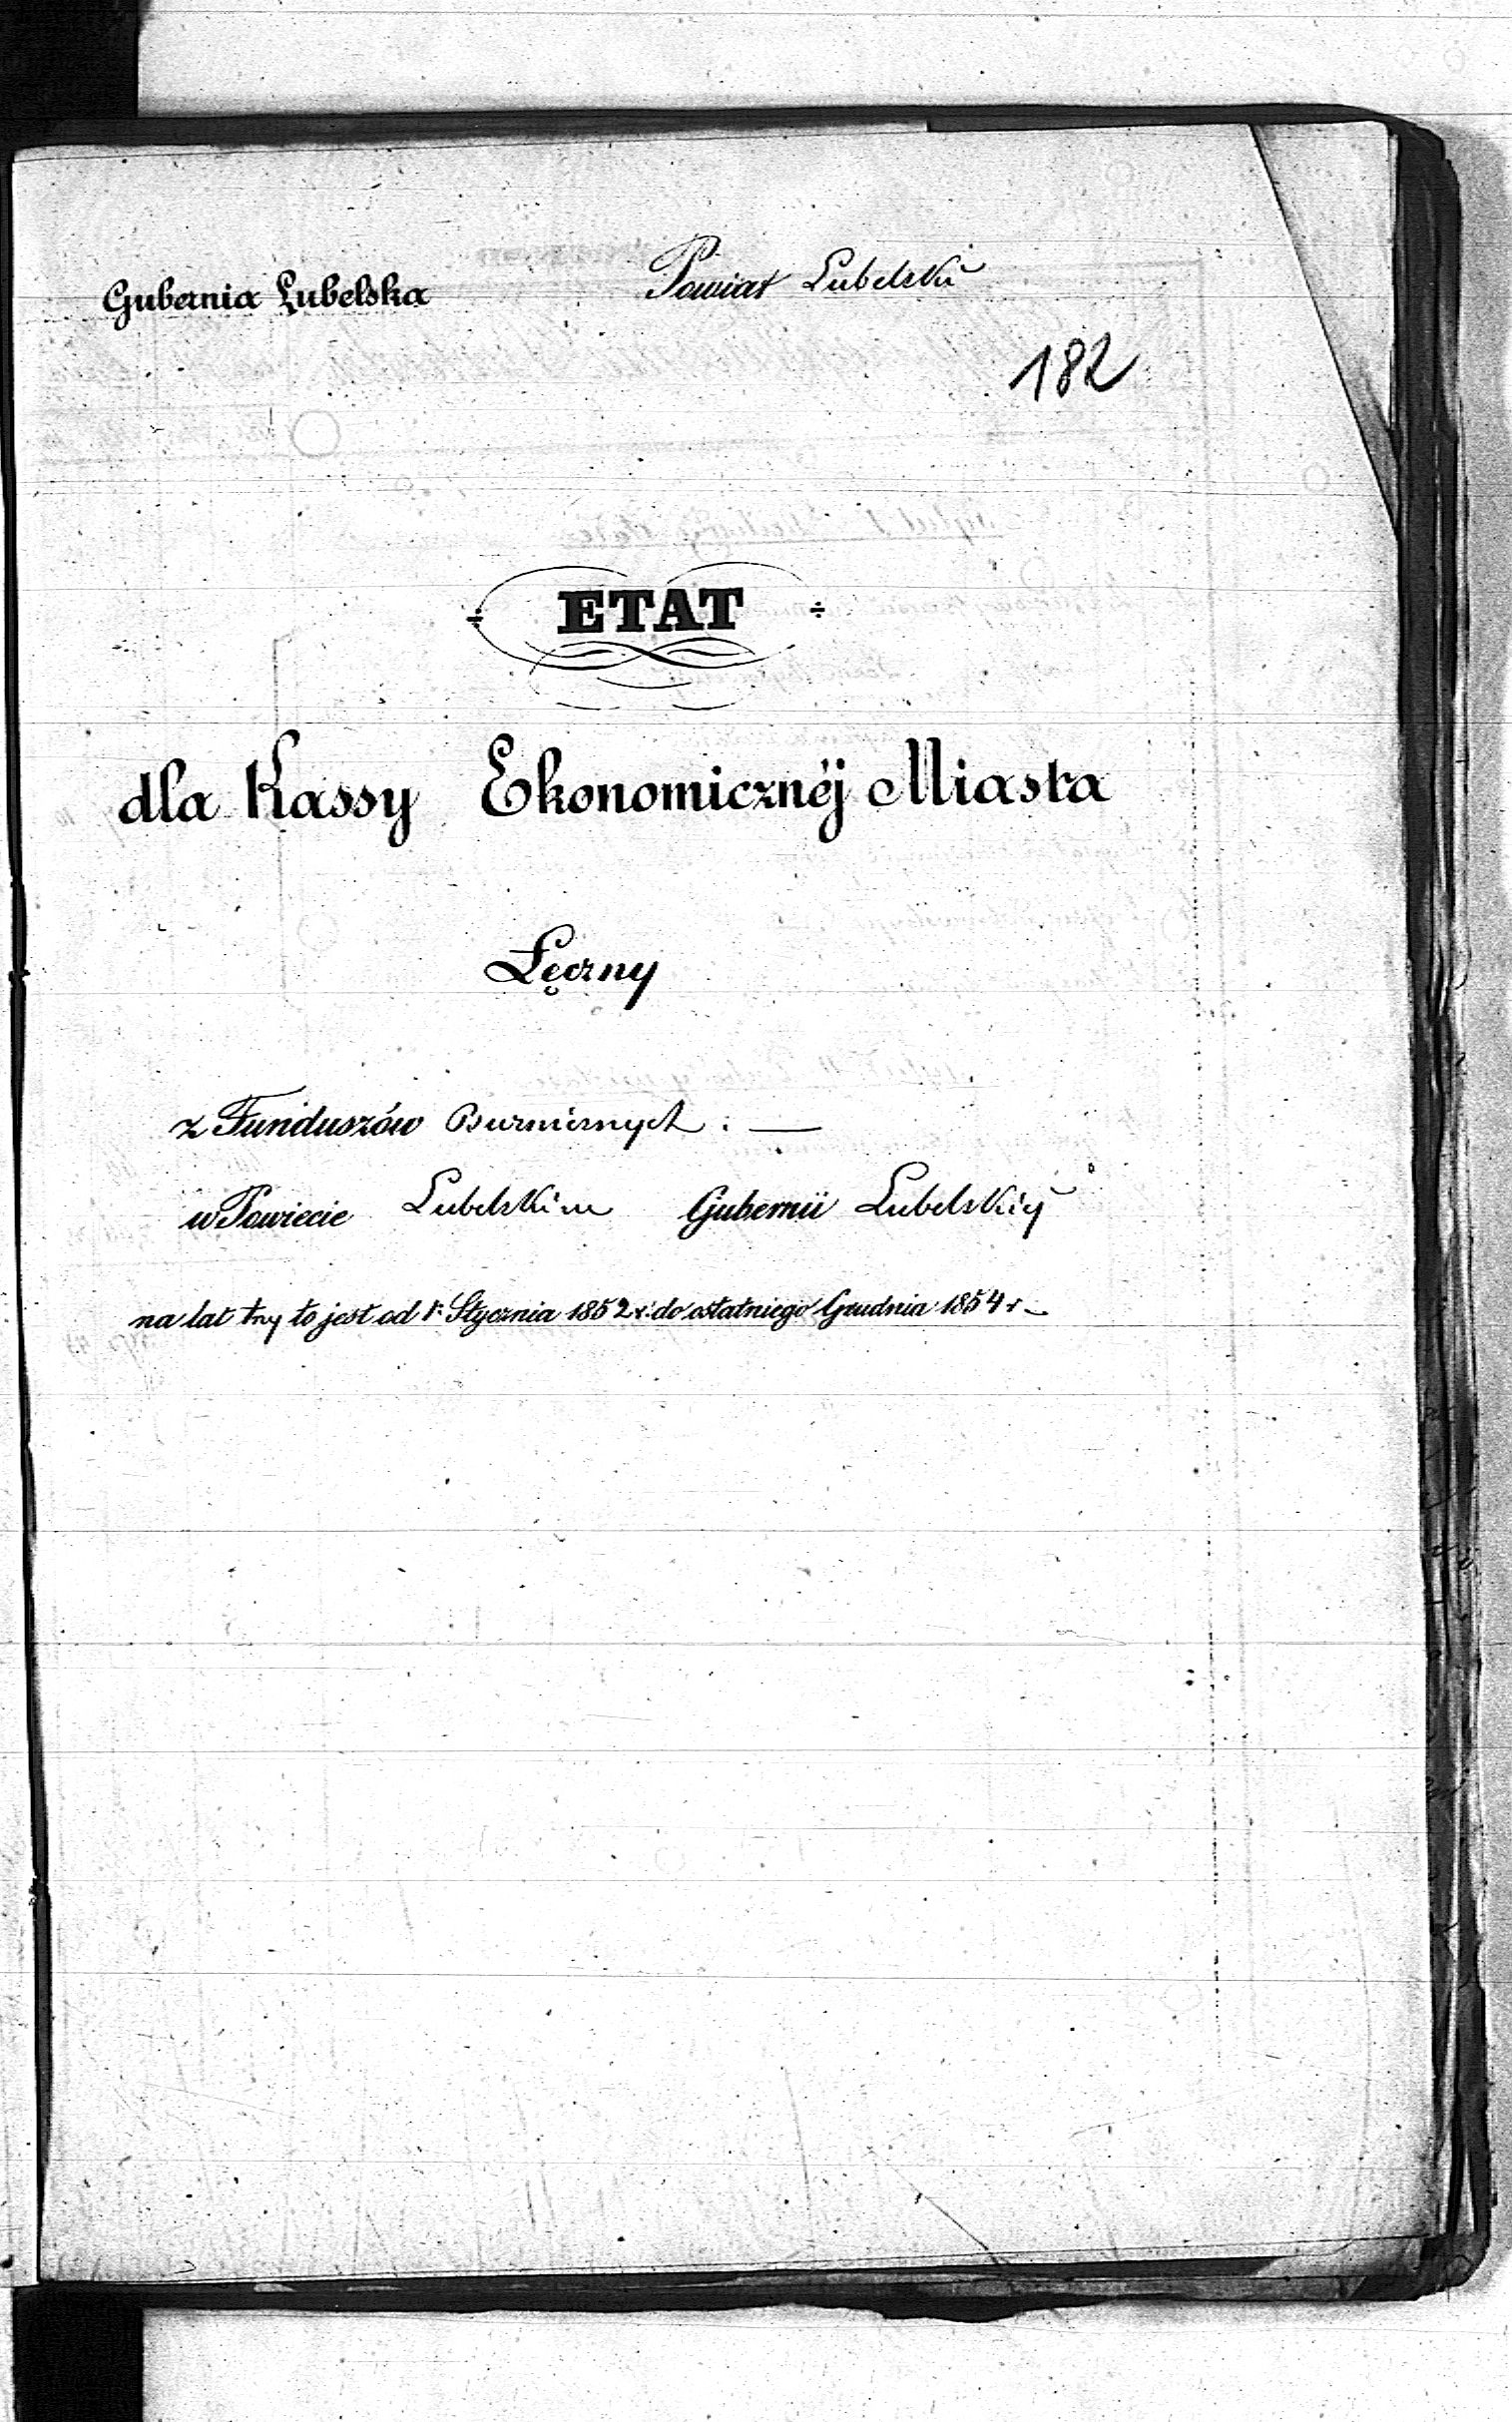 Gubernia Lubelska Powiat Lubelski
182
ETAT
dla Kassy Ekonomicznéj Miasta
Łęczny
z Funduszów Burmisrnych : —
w Powiecie Lubelskim Gubernii Lubelskiéj
na lat trzy to jest od 1º Stycznia 1852 r: do ostatniego Grudnia 1854 r —